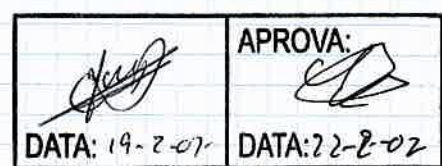 APROVA:
DATA: 19-2-02 DATA: 22-2-02